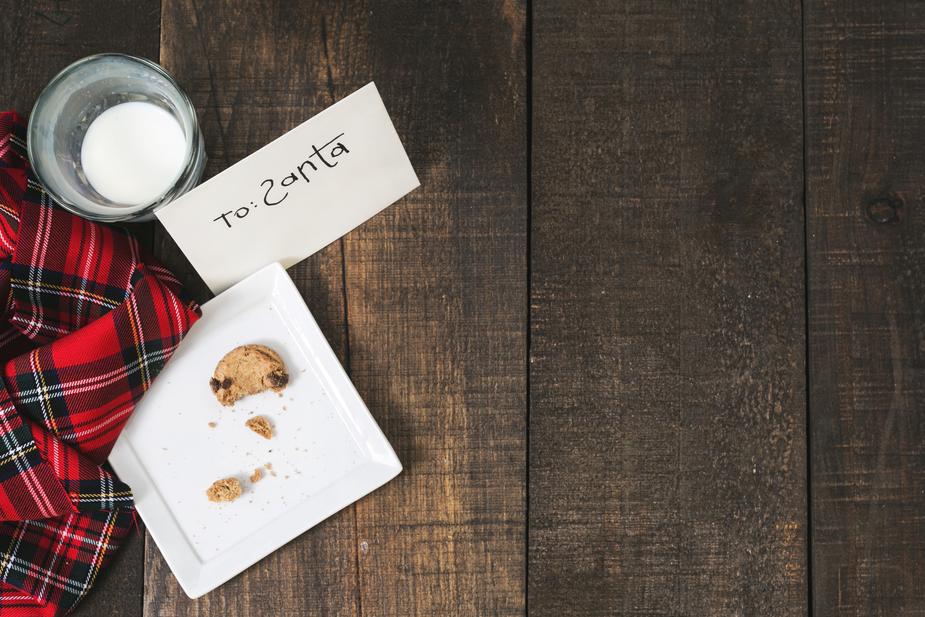 To: Santa